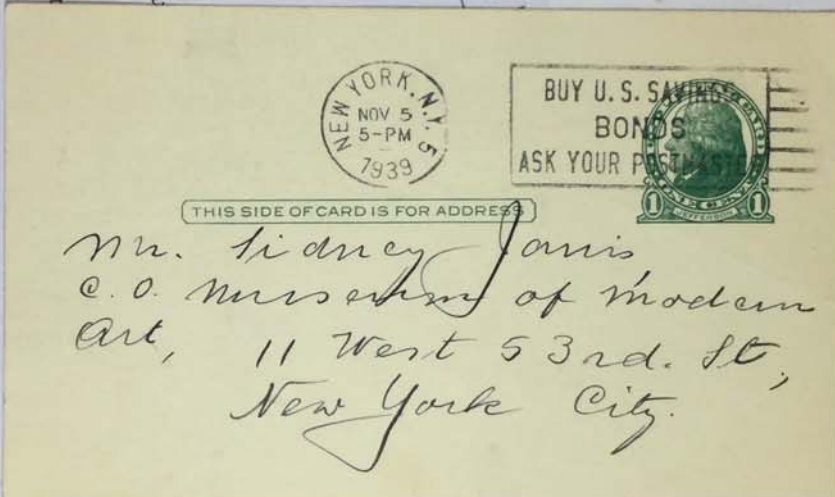 NEW YORK, N.Y. 5
NOV 5
5-PM
1939
BUY U. S. SAVINGS
BONDS
ASK YOUR POSTMASTER
THIS SIDE OF CARD IS FOR ADDRESS
1 JEFFERSON 1
Mr. Sidney Janis
c.o. Museum of Modern
Art, 11 West 53rd. St,
New York City.